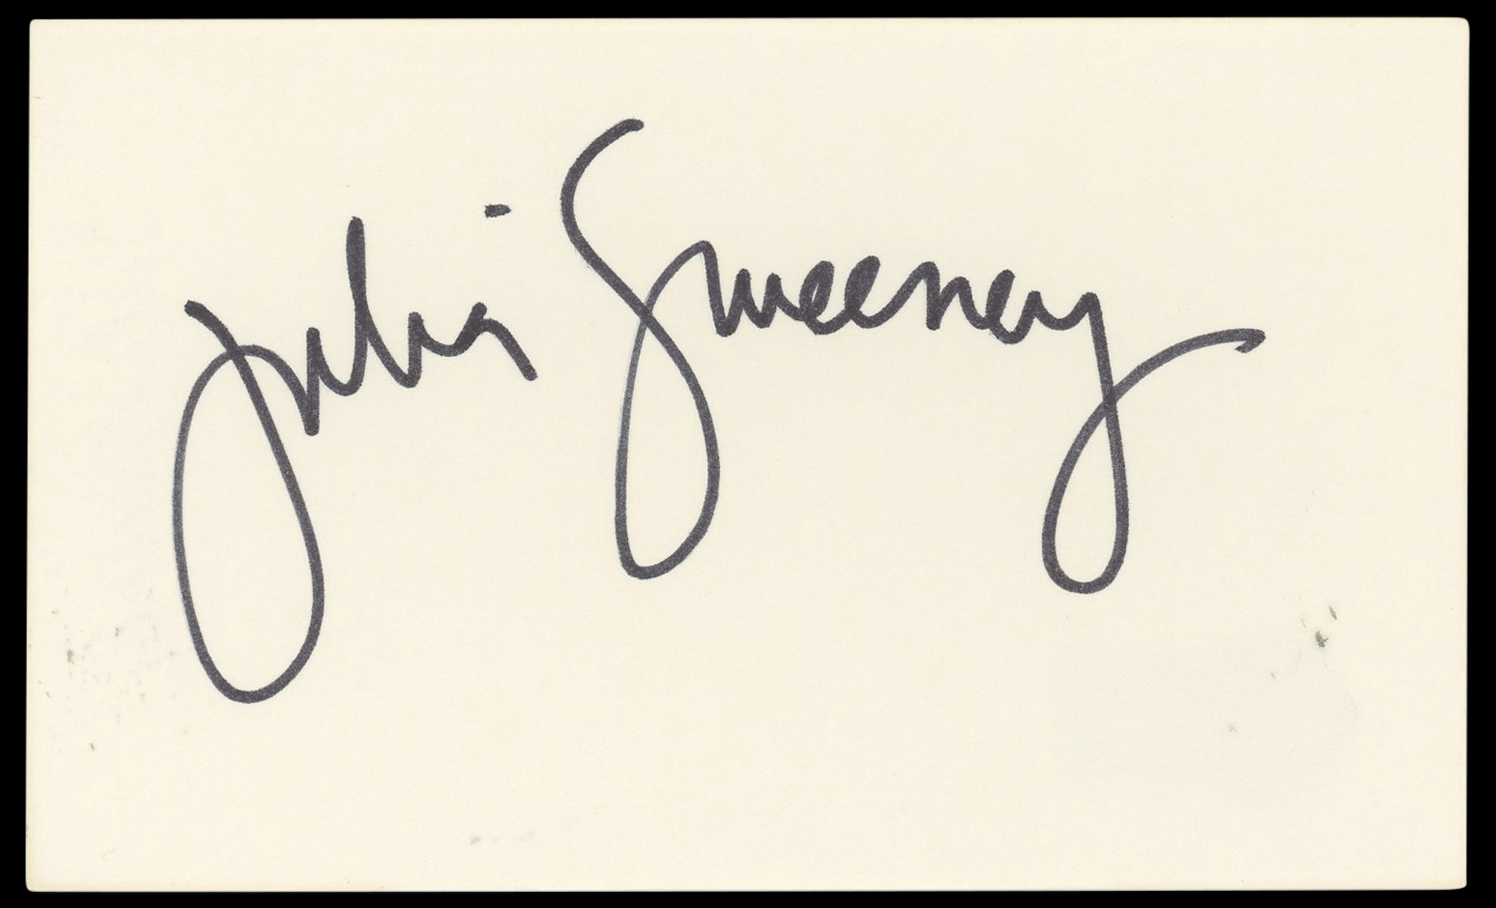 Julia Sweeney